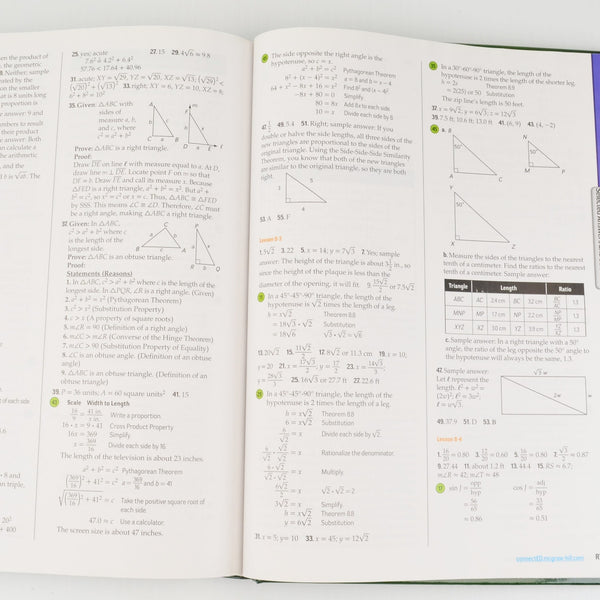 en the product of
, the geometric
8. Neither; sample
rated by the
n the smaller
that is 8 units long
proportion is
e answer: 9 and
numbers to result
their product
e answer: Both
an calculate a
the arithmetic
, and the
d b is √ab. The
of each side
• 8 and
an triple,
20²
+ 400
25. yes; acute 27. 15 29. 4√6 ≈ 9.8
7.6² ≟ 4.2² + 6.4²
57.76 < 17.64 + 40.96
31. acute; XY = √29, YZ = √20, XZ = √13; (√29)² <
(√20)² + (√13)² 33. right; XY = 6, YZ = 10, XZ = 8;
6² + 8² = 10²
35. Given: △ABC with
sides of
measure a, b,
and c, where
c² = a² + b²
Prove: △ABC is a right triangle.
Proof:
Draw DE on line ℓ with measure equal to a. At D,
draw line m ⊥ DE. Locate point F on m so that
DF = b. Draw FE and call its measure x. Because
△FED is a right triangle, a² + b² = x². But a² +
b² = c², so x² = c² or x = c. Thus, △ABC ≅ △FED
by SSS. This means ∠C ≅ ∠D. Therefore, ∠C must
be a right angle, making △ABC a right triangle.
37. Given: In △ABC,
c² > a² + b² where c
is the length of the
longest side.
Prove: △ABC is an obtuse triangle.
Proof:
Statements (Reasons)
1. In △ABC, c² > a² + b² where c is the length of the
longest side. In △PQR, ∠R is a right angle. (Given)
2. a² + b² = x² (Pythagorean Theorem)
3. c² > x² (Substitution Property)
4. c > x (A property of square roots)
5. m∠R = 90 (Definition of a right angle)
6. m∠C > m∠R (Converse of the Hinge Theorem)
7. m∠C > 90 (Substitution Property of Equality)
8. ∠C is an obtuse angle. (Definition of an obtuse
angle)
9. △ABC is an obtuse triangle. (Definition of an
obtuse triangle)
39. P = 36 units; A = 60 square units² 41. 15
43 Scale Width to Length
16/9 = 41 in./x in. Write a proportion.
16 • x = 9 • 41 Cross Product Property
16x = 369 Simplify
x = 369/16 Divide each side by 16
The length of the television is about 23 inches.
a² + b² = c² Pythagorean Theorem
(369/16)² + 41² = c² a = 369/16 and b = 41
√(369/16)² + 41² = c Take the positive square root of
each side.
47.0 ≈ c Use a calculator.
The screen size is about 47 inches.
45 The side opposite the right angle is the
hypotenuse, so c = x.
a² + b² = c² Pythagorean Theorem
8² + (x − 4)² = x² a = 8 and b = x − 4
64 + x² − 8x + 16 = x² Find 8² and (x − 4)²
−8x + 80 = 0 Simplify
80 = 8x Add 8x to each side.
10 = x Divide each side by 8
47. 1/2 49. 5.4 51. Right; sample answer: If you
double or halve the side lengths, all three sides of the
new triangles are proportional to the sides of the
original triangle. Using the Side-Side-Side Similarity
Theorem, you know that both of the new triangles
are similar to the original triangle, so they are both
right.
3
5
4
53. A 55. F
Lesson 8-3
1. 5√2 3. 22 5. x = 14; y = 7√3 7. Yes; sample
answer: The height of the triangle is about 3 1/2 in., so
since the height of the plaque is less than the
diameter of the opening, it will fit. 9. 15√2/2 or 7.5√2
11 In a 45°-45°-90° triangle, the length of the
hypotenuse is √2 times the length of a leg.
h = x√2 Theorem 8.8
= 18√3 • √2 Substitution
= 18√6 √3 • √2 = √6
13. 20√2 15. 11√2/2 17. 8√2 or 11.3 cm 19. x = 10;
25. 16√3 or 27.7 ft 27. 22.6 ft
29 In a 45°-45°-90° triangle, the length of the
hypotenuse is √2 times the length of a leg.
h = x√2 Theorem 8.8
6 = x√2 Substitution
6/√2 = x Divide each side by √2.
6/√2 • √2/√2 = x Rationalize the denominator.
6 • √2/√2 • √2 = x Multiply.
6√2/2 = x √2 • √2 = 2
3√2 = x Simplify
h = x√2 Theorem 8.8
y = 6√2 Substitution
31. x = 5; y = 10 33. x = 45; y = 12√2
35 In a 30°-60°-90° triangle, the length of the
hypotenuse is 2 times the length of the shorter leg.
h = 2s Theorem 8.9
= 2(25) or 50 Substitution
The zip line's length is 50 feet.
37. x = 9√2, y = 6√3, z = 12√3
39. 7.5 ft; 10.6 ft; 13.0 ft 41. (6, 9) 43. (4, −2)
45 a.
B
50°
A C
N
50°
M P
Y
50°
X Z
b. Measure the sides of the triangles to the nearest
tenth of a centimeter. Find the ratios to the nearest
tenth of a centimeter. Sample answer:
Triangle Length Ratio
ABC AC 2.4 cm BC 3.2 cm BC/AC 1.3
MNP MP 1.7 cm NP 2.2 cm NP/MP 1.3
XYZ XZ 3.0 cm YZ 3.9 cm YZ/XZ 1.3
c. Sample answer: In a right triangle with a 50°
angle, the ratio of the leg opposite the 50° angle to
the hypotenuse will always be the same, 1.3.
47. Sample answer:
Let ℓ represent the
length. ℓ² + w² =
(2w)²; ℓ² = 3w²;
ℓ = w√3.
49. 37.9 51. D 53. B
Lesson 8-4
1. 16/20 = 0.80 3. 12/20 = 0.60 5. 16/20 = 0.80 7. √3/2 ≈ 0.87
9. 27.44 11. about 1.2 ft 13. 44.4 15. RS ≈ 6.7;
m∠R ≈ 42; m∠T ≈ 48
17 sin J = opp/hyp cos J = adj/hyp
= 56/65 = 33/65
≈ 0.86 ≈ 0.51
connectED.mcgraw-hill.com